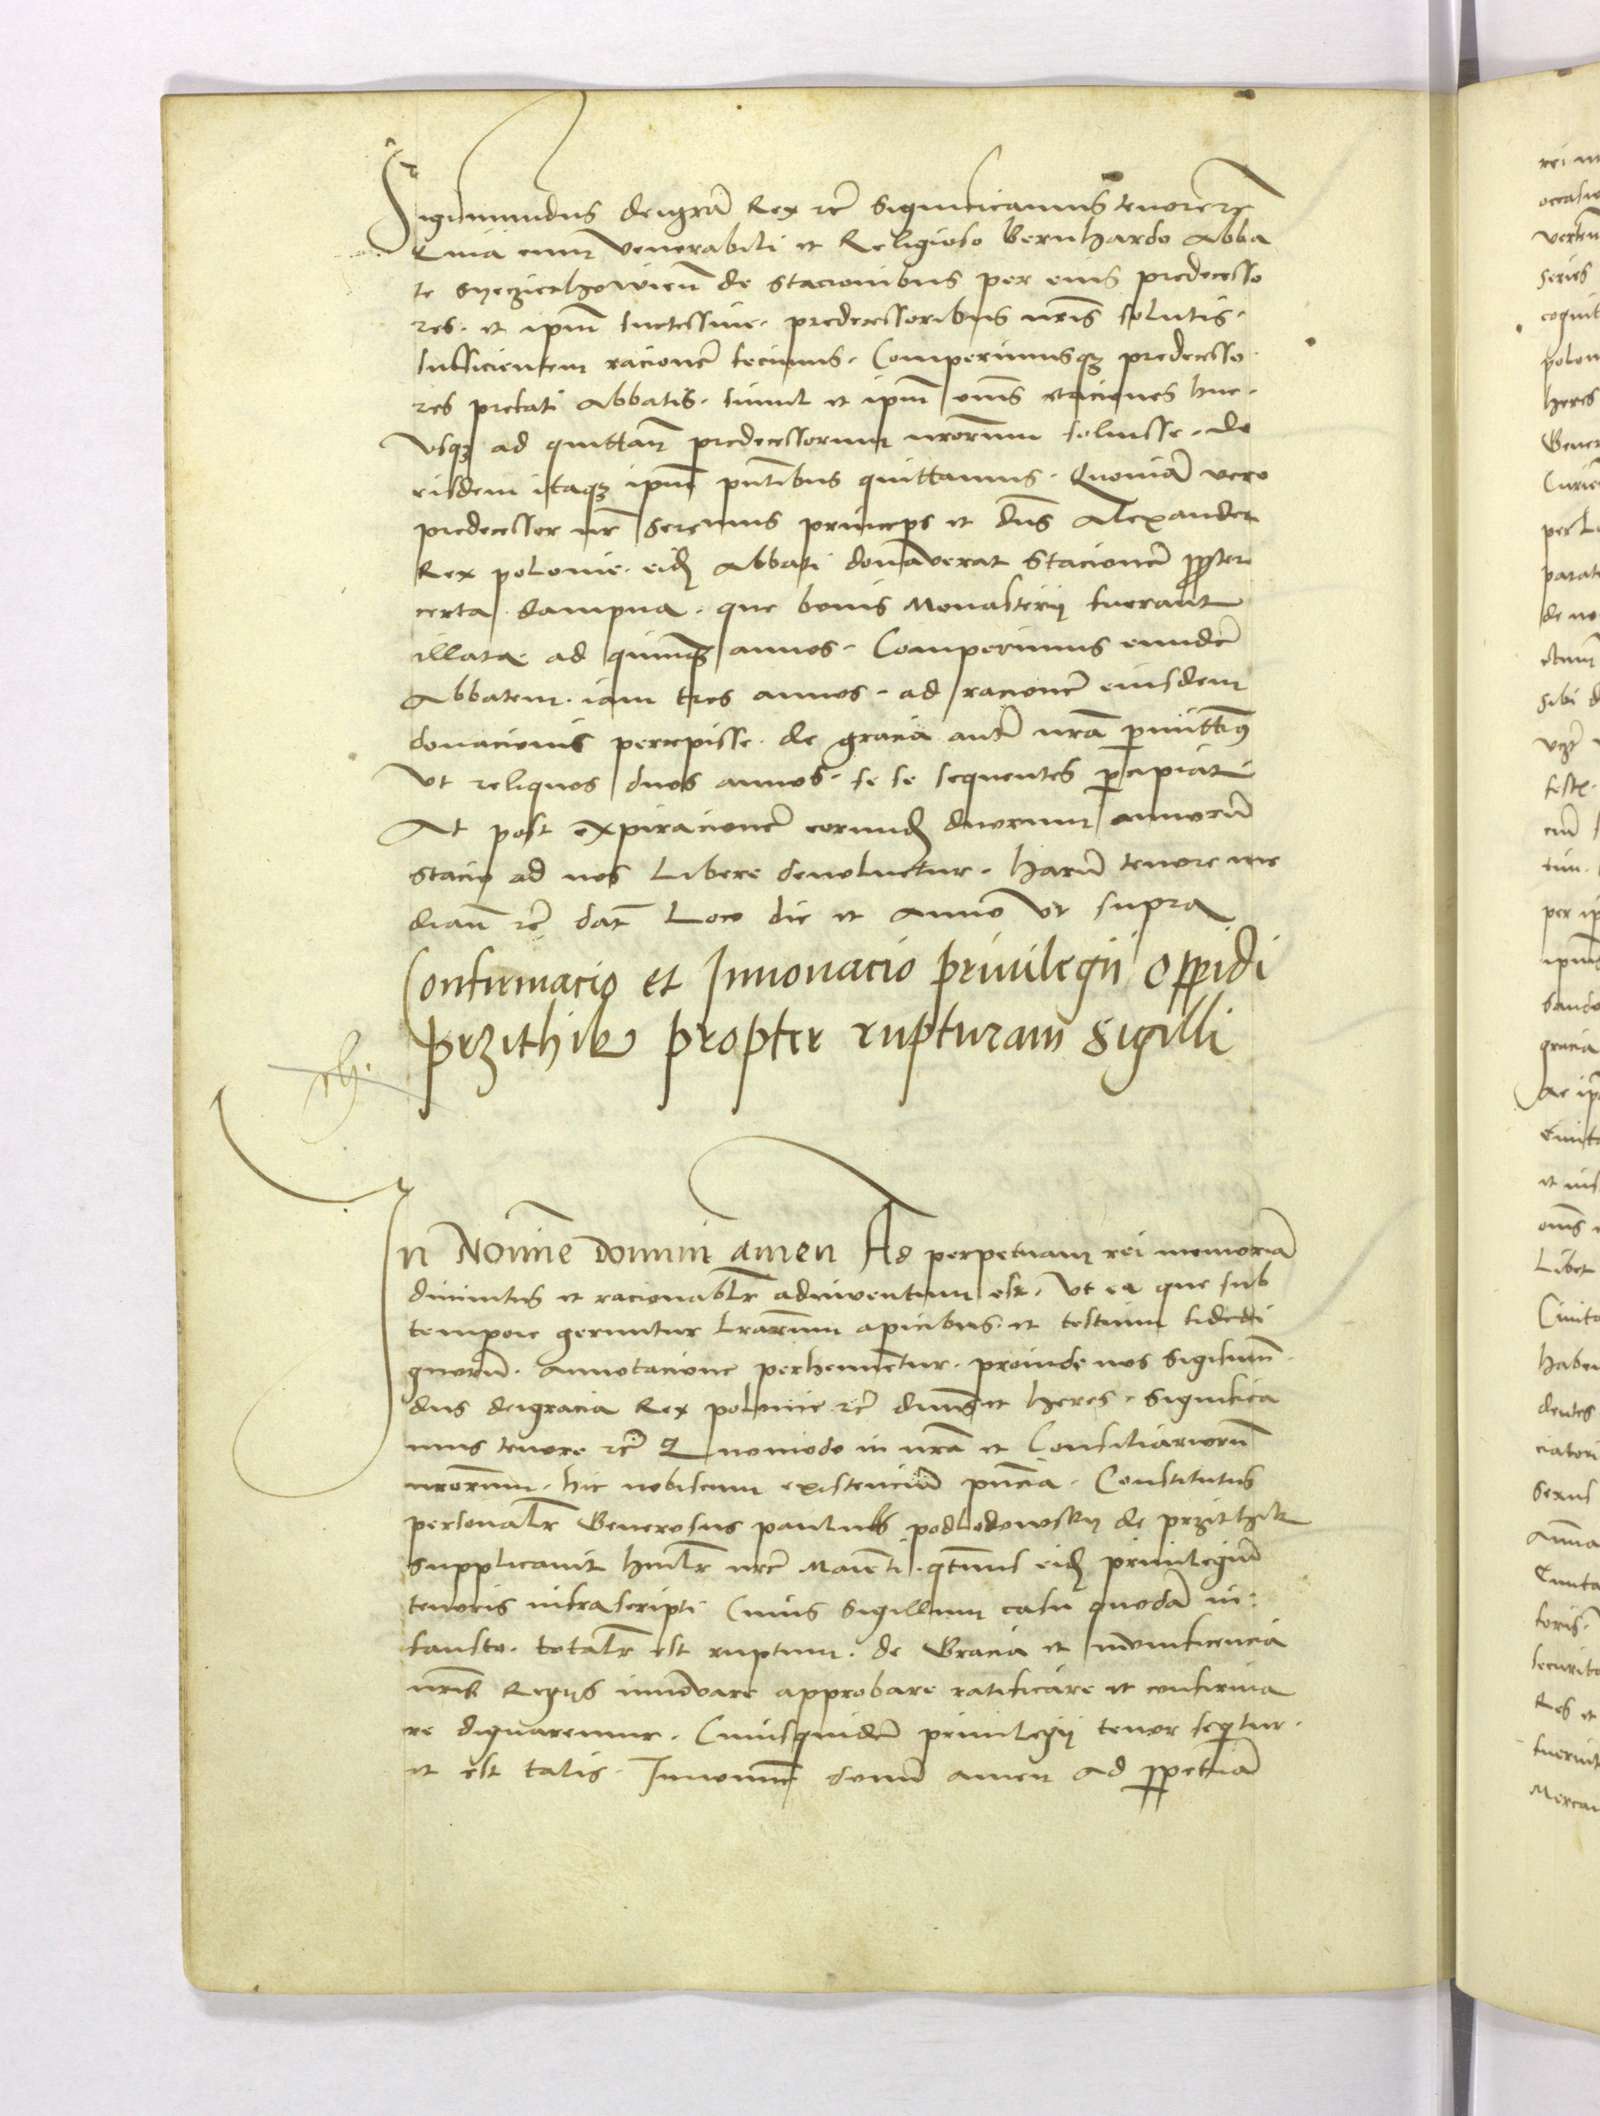 Sigismundus deigrã Rex etc̃ Significamus tenore etc̃
Quia cum Venerabili et Religioso Bernhardo Abba
te Syecziechowien̄ de Stacionibus per eius predecesso
res. et ipm̄ successiue. predecessoribus nrīs solutis.
Sufficientem racionē fecimus. Comperimusqȝ predecesso
res prefati Abbatis. simul et ipm̄ om̄s staciones huc.
Vsqȝ ad quittan̄ predecessorum nrōrum soluisse. de
eisdem itaqȝ ipm̄ pn̄tibus quittamus. Quoniā vero
predecessor nr̄ Serenus princeps et dn̄s Alexander
Rex polonie. eid̄ Abbati donauerat Stacionē propter
certa. dampna. que bonis Monasterij fuerant
illata. ad quinqȝ annos. Comperimus eundē
Abbatem. iam tres annos. ad racionē eiusdem
donacionis percepisse. de gracia autē nrā permittimus
Vt reliquos duos annos. se se sequentes percipiat
At post expiracionē eorund̄ duorum annorū
Stacio ad nos Libere deuoluetur. harū tenore me
dian̄ etc̃ dat̄ Loco die et Anno Vt supra
Confirmacio et Innouacio priuilegij Oppidi
przithik propter rupturam Sigilli
In Nomine Domini amen Ad perpetuam rei memoriā
diuinitus et racionabilr̄ adinuentum est. Vt ea que sub
tempore geruntur lr̄arum apicibus. et testium fidedi
gnorū. annotacione perhennetur. proinde nos Sigismūn
dus deigracia Rex polonie etc̃ dn̄us et heres. Significa
mus tenore etc̃ Quomodo in nrā et Consiliariorū
nrōrum. hic nobiscum existenciū pn̄cia. Constitutus
personalr̄ Generosus paulus podlodowskij de przithik
Supplicauit humilr̄ nrē Maiestati. qten̄us eid̄ priuilegiū
tenoris infrascripti Cuius Sigillum casu quodā in:
fausto. totalr̄ est ruptum. de Gracia et munificencia
nrīs Regijs innouare approbare ratificare et confirma
re dignaremur. Cuiusquidē priuilegij tenor seqtur.
et est talis. Innomine domī amen Ad perpetuā